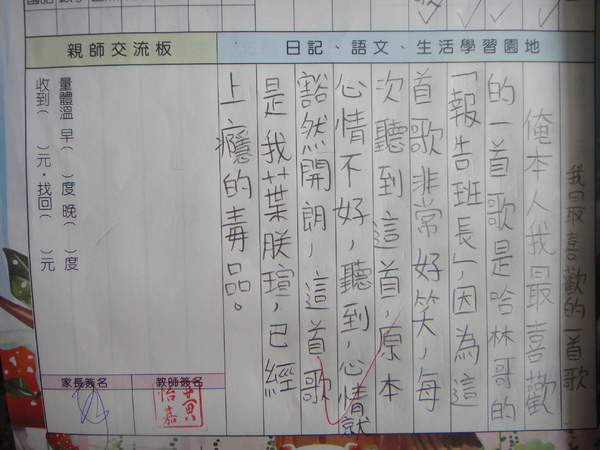 親師交流板
日記、語文、生活學習園地
我最喜歡的一首歌
俺本人我最喜歡
的一首歌是哈林哥的
「報告班長」,因為這
首歌非常好笑,每
次聽到這首,原本
心情不好,聽到,心情就
豁然開朗,這首歌
是我葉朕瑄,已經
上癮的毒品。
量體溫 早( )度 晚( )度
收到( )元.找回( )元
家長簽名
教師簽名
黃怡嘉